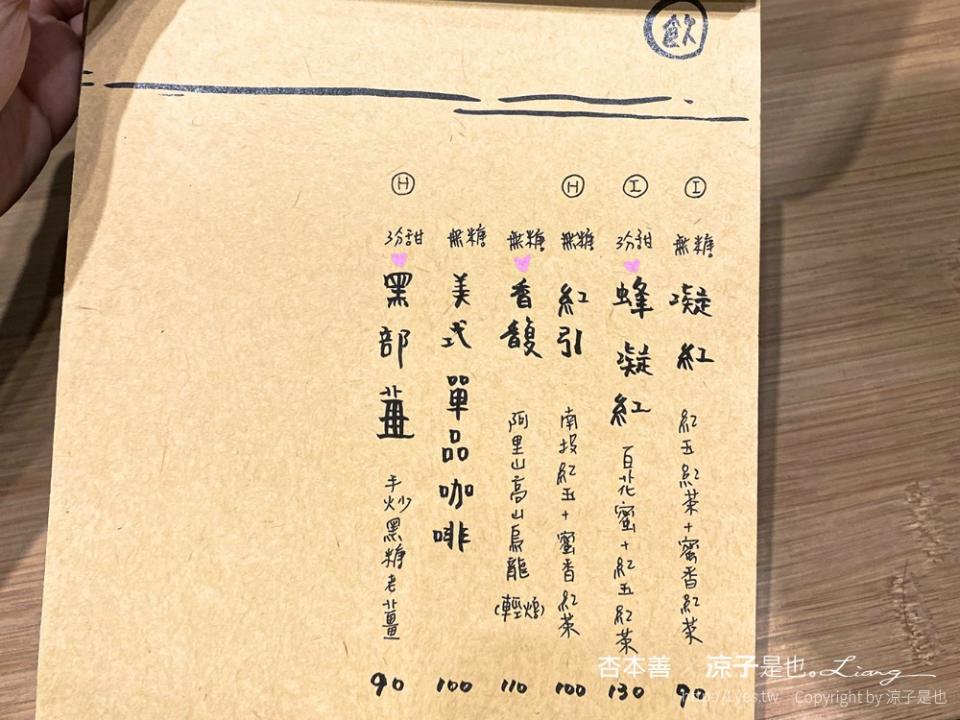 飲
Ⓘ
無糖
凝紅
紅玉紅茶+蜜香紅茶
90
Ⓘ
3分甜
蜂凝紅
百花蜜+紅玉紅茶
130
Ⓗ
無糖
紅引
南投紅玉+蜜香紅茶
100
無糖
香馥
阿里山高山烏龍(輕焙)
110
無糖
美式單品咖啡
100
Ⓗ
3分甜
黑部薑
手炒黑糖老薑
90
杏本善 涼子是也。Liang
http://1yes.tw Copyright by 涼子是也